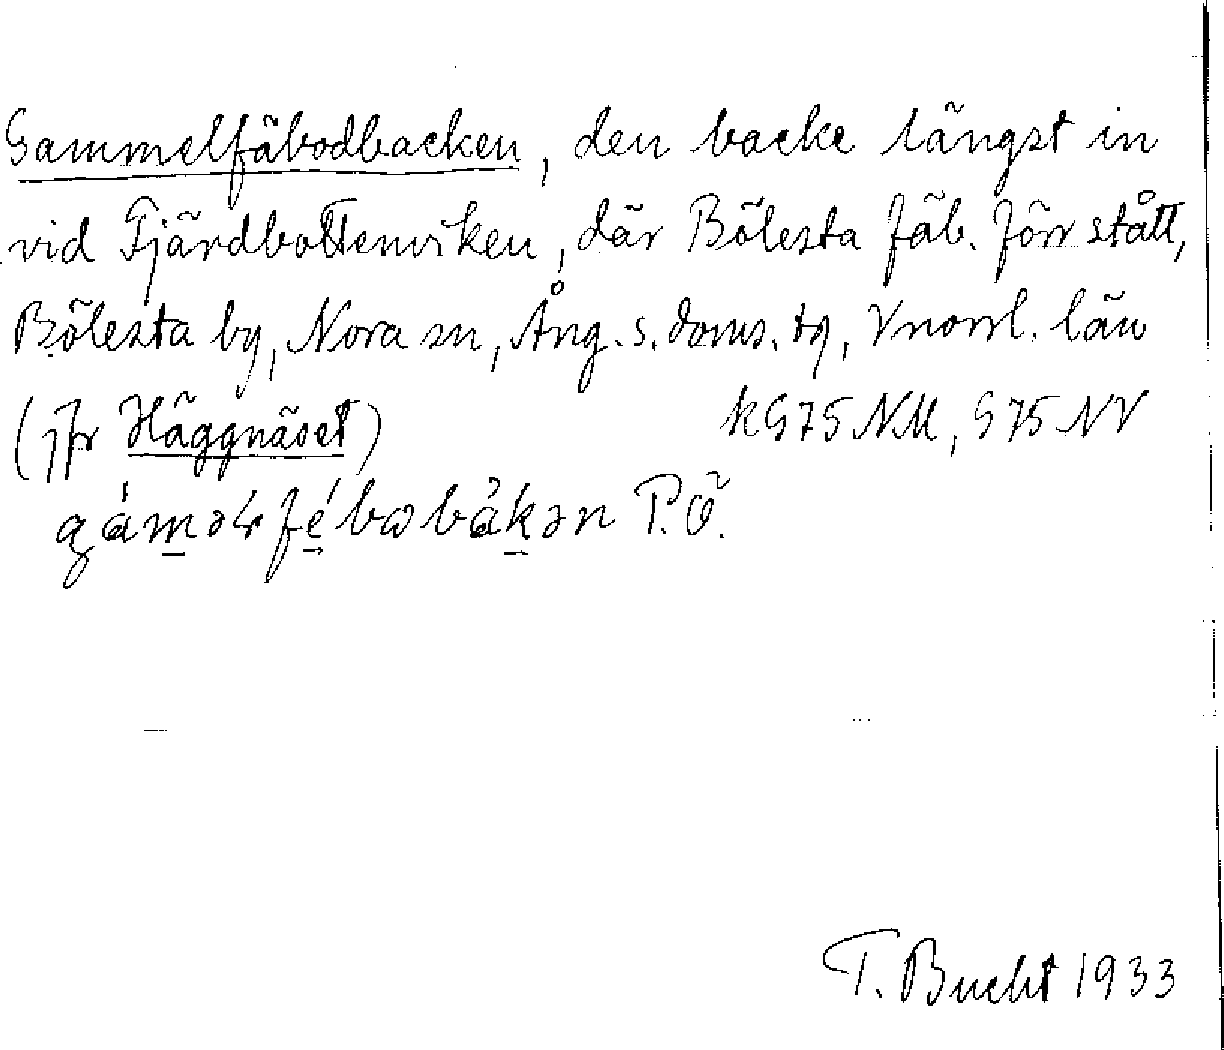 Gammelfäbodbacken, den backe längst in
vid Fjärdbottenviken, där Bölesta fäb. förr stått,
Bölesta by, Nora sn, Ång. s. doms. tg, Vnorrl. län
(jfr Häggnäset) kG75NM, G75NV
P.Ö.
T. Bucht 1933